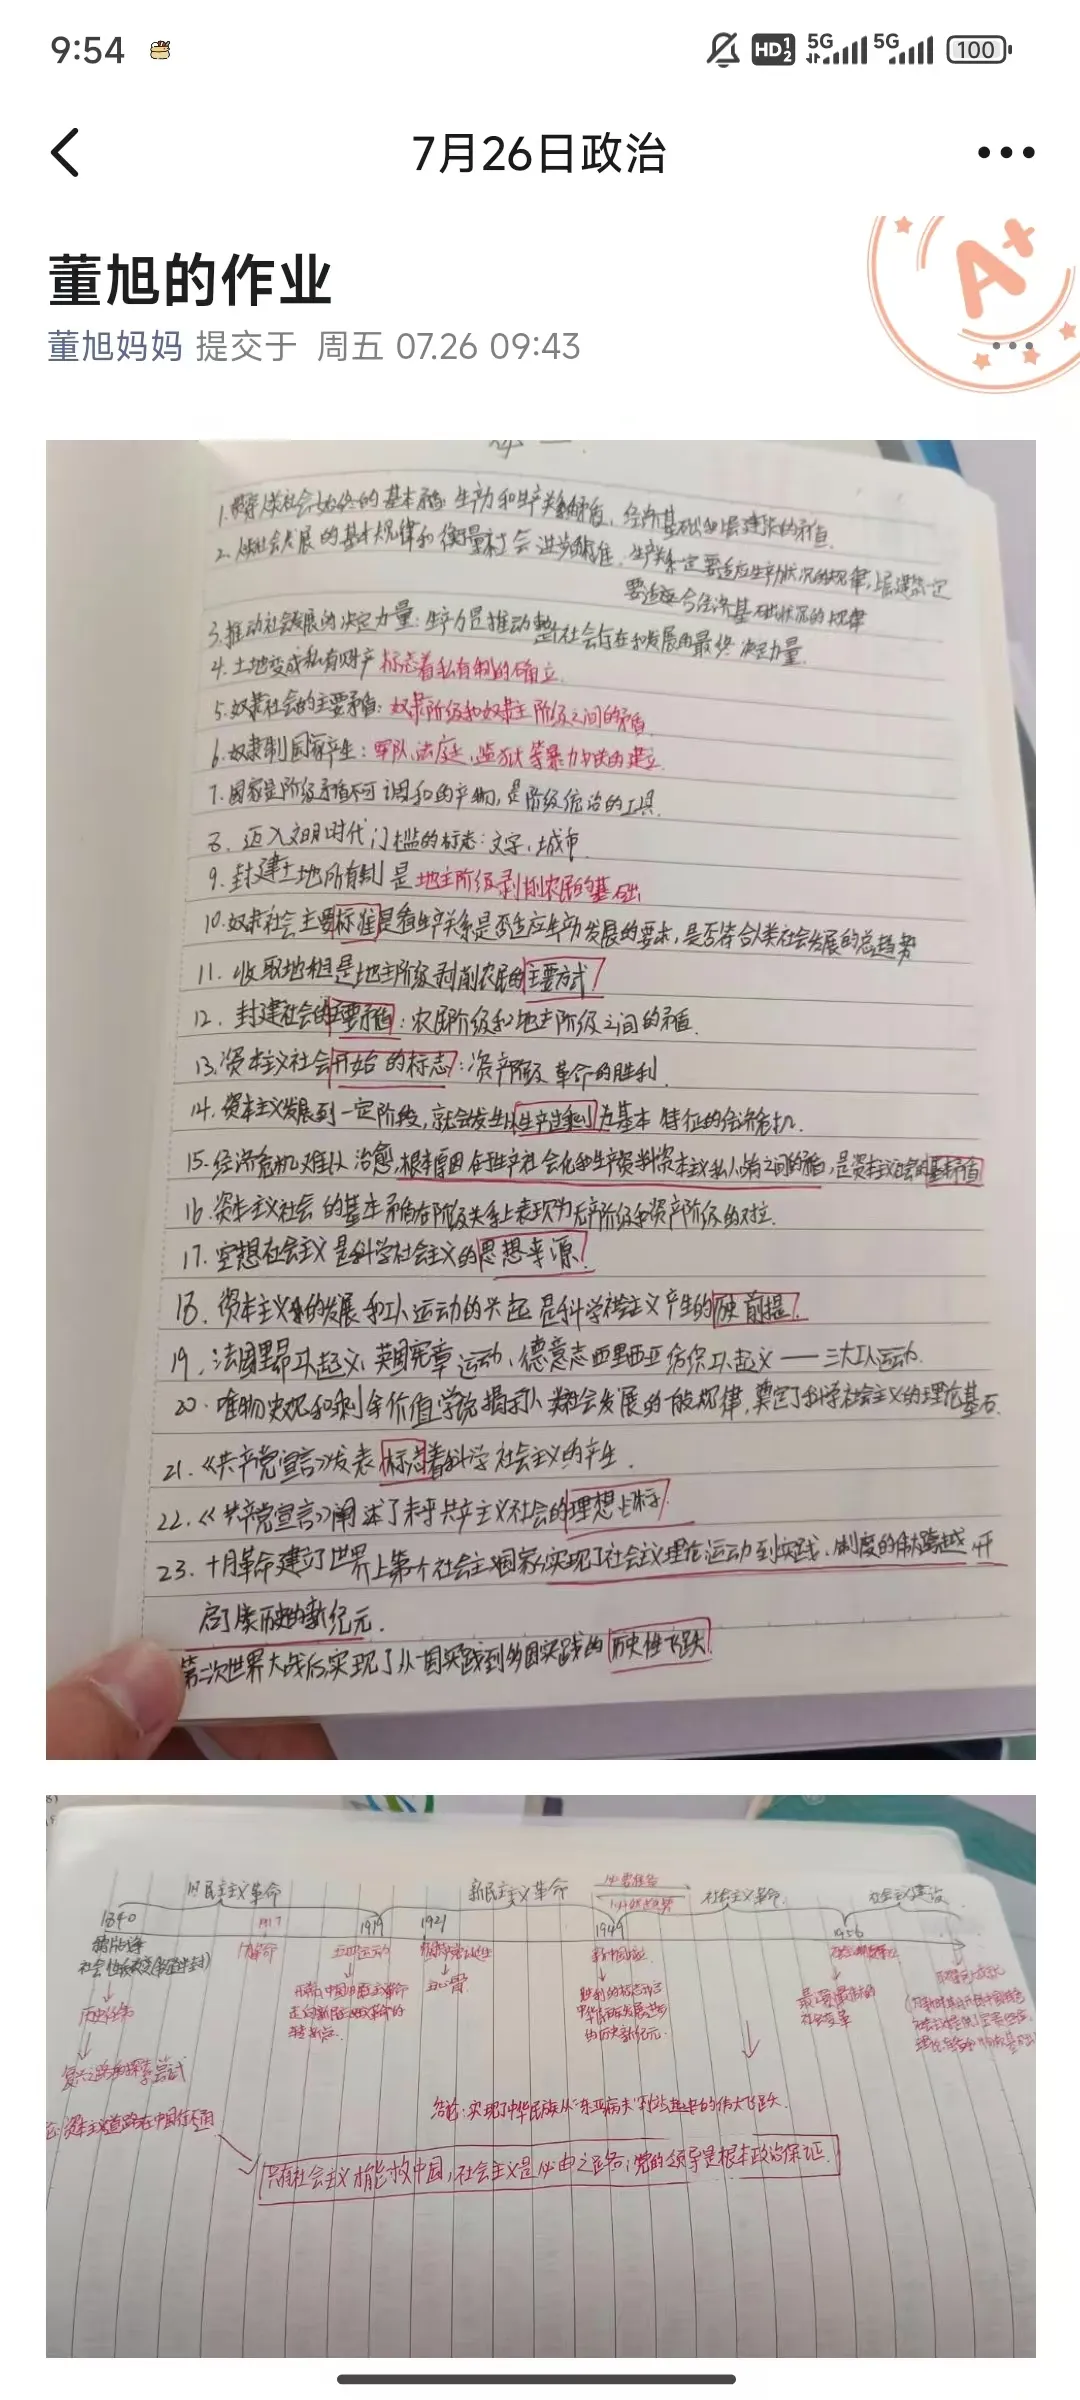 9:54
HD 1 2 5G 5G 100
7月26日政治
A+
董旭的作业
董旭妈妈 提交于 周五 07.26 09:43
1.人类社会始终的基本矛盾:生产力和生产关系的矛盾、经济基础和上层建筑的矛盾.
2.人类社会发展的基本规律和衡量社会进步的标准.生产关系一定要适应生产力状况的规律,上层建筑一定
要适合经济基础状况的规律
3.推动社会发展的决定力量:生产力是推动整个社会存在和发展的最终决定力量.
4.土地变成私有财产标志着私有制的确立.
5.奴隶社会的主要矛盾:奴隶阶级和奴隶主阶级之间的矛盾
6.奴隶制国家产生:军队、法庭、监狱等暴力机关的建立.
7.国家是阶级矛盾不可调和的产物,是阶级统治的工具.
8.迈入文明时代门槛的标志:文字、城市.
9.封建土地所有制是地主阶级剥削农民的基础
10.奴隶社会主要标准是看生产关系是否适应生产力发展的要求,是否符合人类社会发展的总趋势
11.收取地租是地主阶级剥削农民的主要方式
12.封建社会的主要矛盾:农民阶级和地主阶级之间的矛盾.
13.资本主义社会开始的标志:资产阶级革命的胜利.
14.资本主义发展到一定阶段,就会发生以生产过剩为基本特征的经济危机.
15.经济危机难以治愈,根本原因在于生产社会化和生产资料资本主义私人占有之间的矛盾,是资本主义社会的基本矛盾
16.资本主义社会的基本矛盾在阶级关系上表现为无产阶级和资产阶级的对立.
17.空想社会主义是科学社会主义的思想来源.
18.资本主义的发展和工人运动的兴起是科学社会主义产生的历史前提.
19.法国里昂工人起义、英国宪章运动、德意志西里西亚纺织工人起义——三大工人运动.
20.唯物史观和剩余价值学说揭示人类社会发展的一般规律,奠定了科学社会主义的理论基石.
21.《共产党宣言》发表标志着科学社会主义的产生.
22.《共产党宣言》阐述了未来共产主义社会的理想目标.
23.十月革命建立了世界上第一个社会主义国家,实现了社会主义理论运动到实践、制度的伟大跨越,开
启了人类历史的新纪元.
第二次世界大战后,实现了从一国实践到多国实践的历史性飞跃.
旧民主主义革命 新民主主义革命 必要准备 社会主义革命 社会主义建设
1840 1917 1919 1921 1949 1956
鸦片战争 十月革命 五四运动 新中国成立
社会性质改变(半殖半封)
历史任务
复兴之路的探索尝试
结论:实现了中华民族从“东亚病夫”到站起来的伟大飞跃.
资本主义道路在中国行不通
只有社会主义才能救中国,社会主义是必由之路;党的领导是根本政治保证.